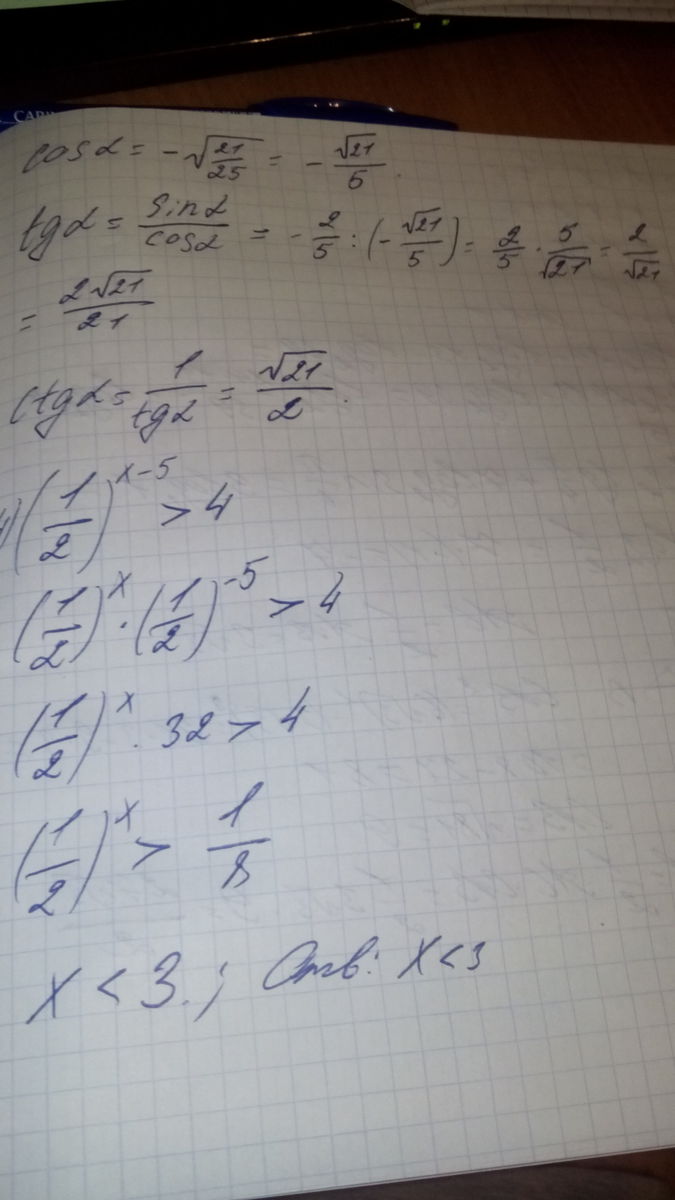 CARI
cos α = -√(21/25) = -√21/5.
tg α = sin α/cos α = -2/5 : (-√21/5) = 2/5 · 5/√21 = 2/√21
= 2√21/21
ctg α = 1/tg α = √21/2.
4) (1/2)^(x-5) > 4
(1/2)^x · (1/2)^(-5) > 4
(1/2)^x · 32 > 4
(1/2)^x > 1/8
x < 3.; Отв: x < 3